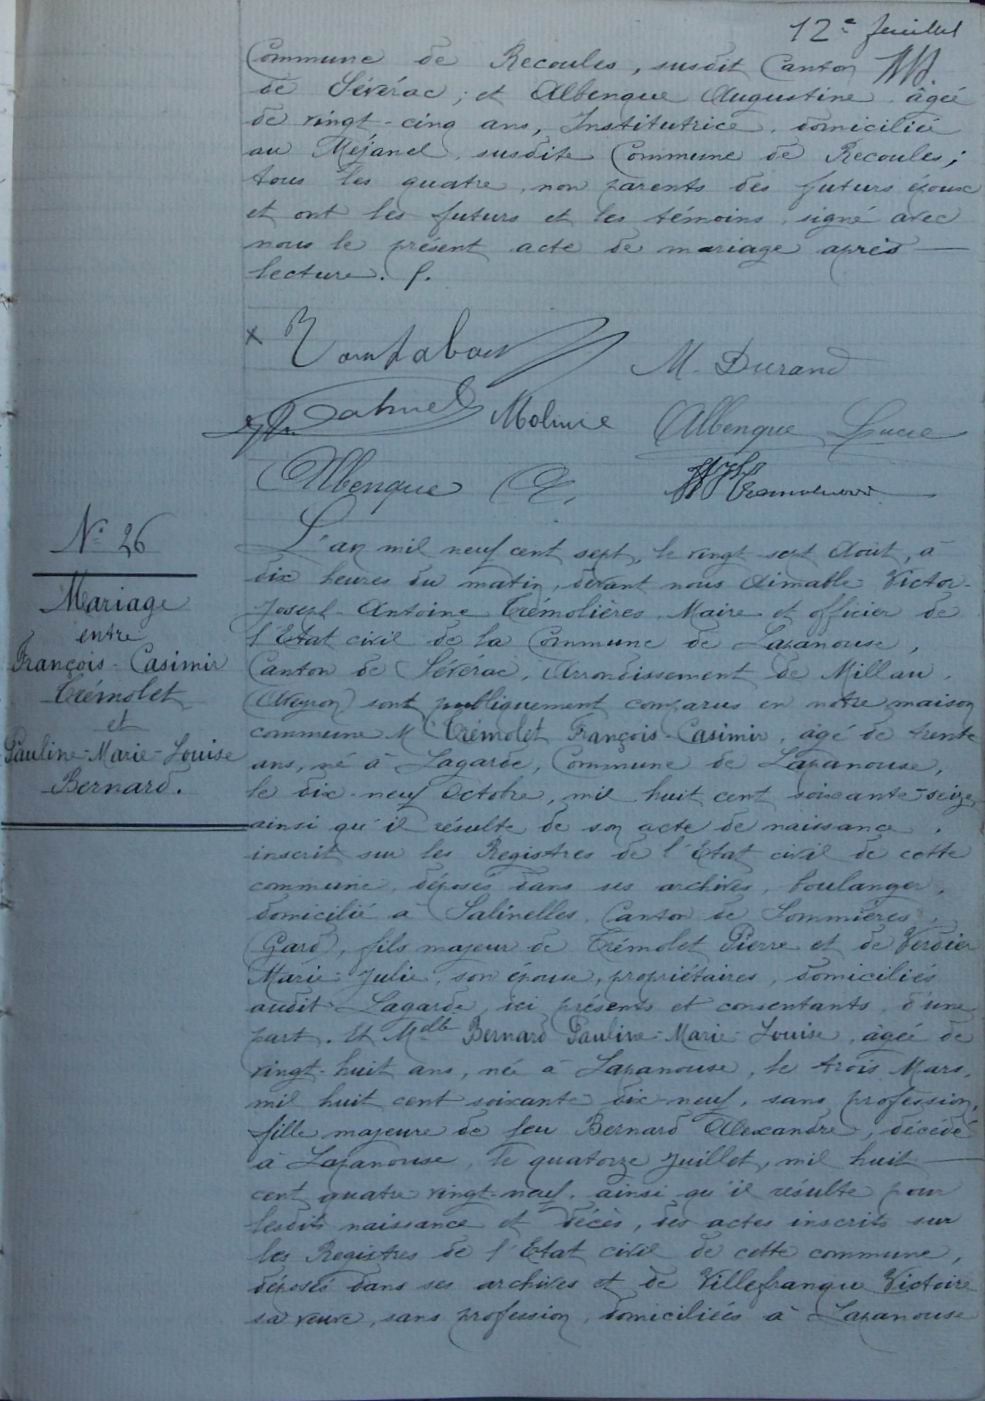 12e feuillet
Commune de Recoules, susdit Canton
de Sévérac; et Albenque Augustine, âgée
de vingt-cinq ans, Institutrice, domiciliée
au Méjanel, susdite Commune de Recoules;
tous les quatre, non parents des futurs époux
et ont les futurs et les témoins, signé avec
nous le présent acte de mariage après
lecture.
M. Durand
Molinie Albenque Lucie
Albenque
N° 26
Mariage
entre
François-Casimir
Trémolet
et
Pauline-Marie-Louise
Bernard.
L'an mil neuf cent sept, le vingt sept Août, à
dix heures du matin, devant nous Aimable Victor-
Joseph-Antoine Trémolières, Maire et officier de
l'Etat civil de la Commune de Lapanouse,
Canton de Sévérac, Arrondissement de Millau,
(Aveyron) sont publiquement comparus en notre maison
commune Mr Trémolet François-Casimir, âgé de trente
ans, né à Lagarde, Commune de Lapanouse,
le dix-neuf Octobre, mil huit cent soixante-seize,
ainsi qu'il résulte de son acte de naissance,
inscrit sur les Registres de l'Etat civil de cette
commune, déposés dans ses archives, boulanger,
domicilié à Salinelles, Canton de Sommières,
(Gard), fils majeur de Trémolet Pierre et de Verdier
Marie-Julie, son épouse, propriétaires, domiciliés
audit Lagarde, ici présents et consentants, d'une
part. Et Melle Bernard Pauline-Marie-Louise, âgée de
vingt-huit ans, née à Lapanouse, le trois Mars,
mil huit cent soixante dix neuf, sans profession,
fille majeure de feu Bernard Alexandre, décédé
à Lapanouse, le quatorze Juillet, mil huit
cent quatre vingt-neuf, ainsi qu'il résulte pour
lesdits naissance et décès, des actes inscrits sur
les Registres de l'Etat civil de cette commune,
déposés dans ses archives et de Villefranque Victoire
sa veuve, sans profession, domiciliées à Lapanouse